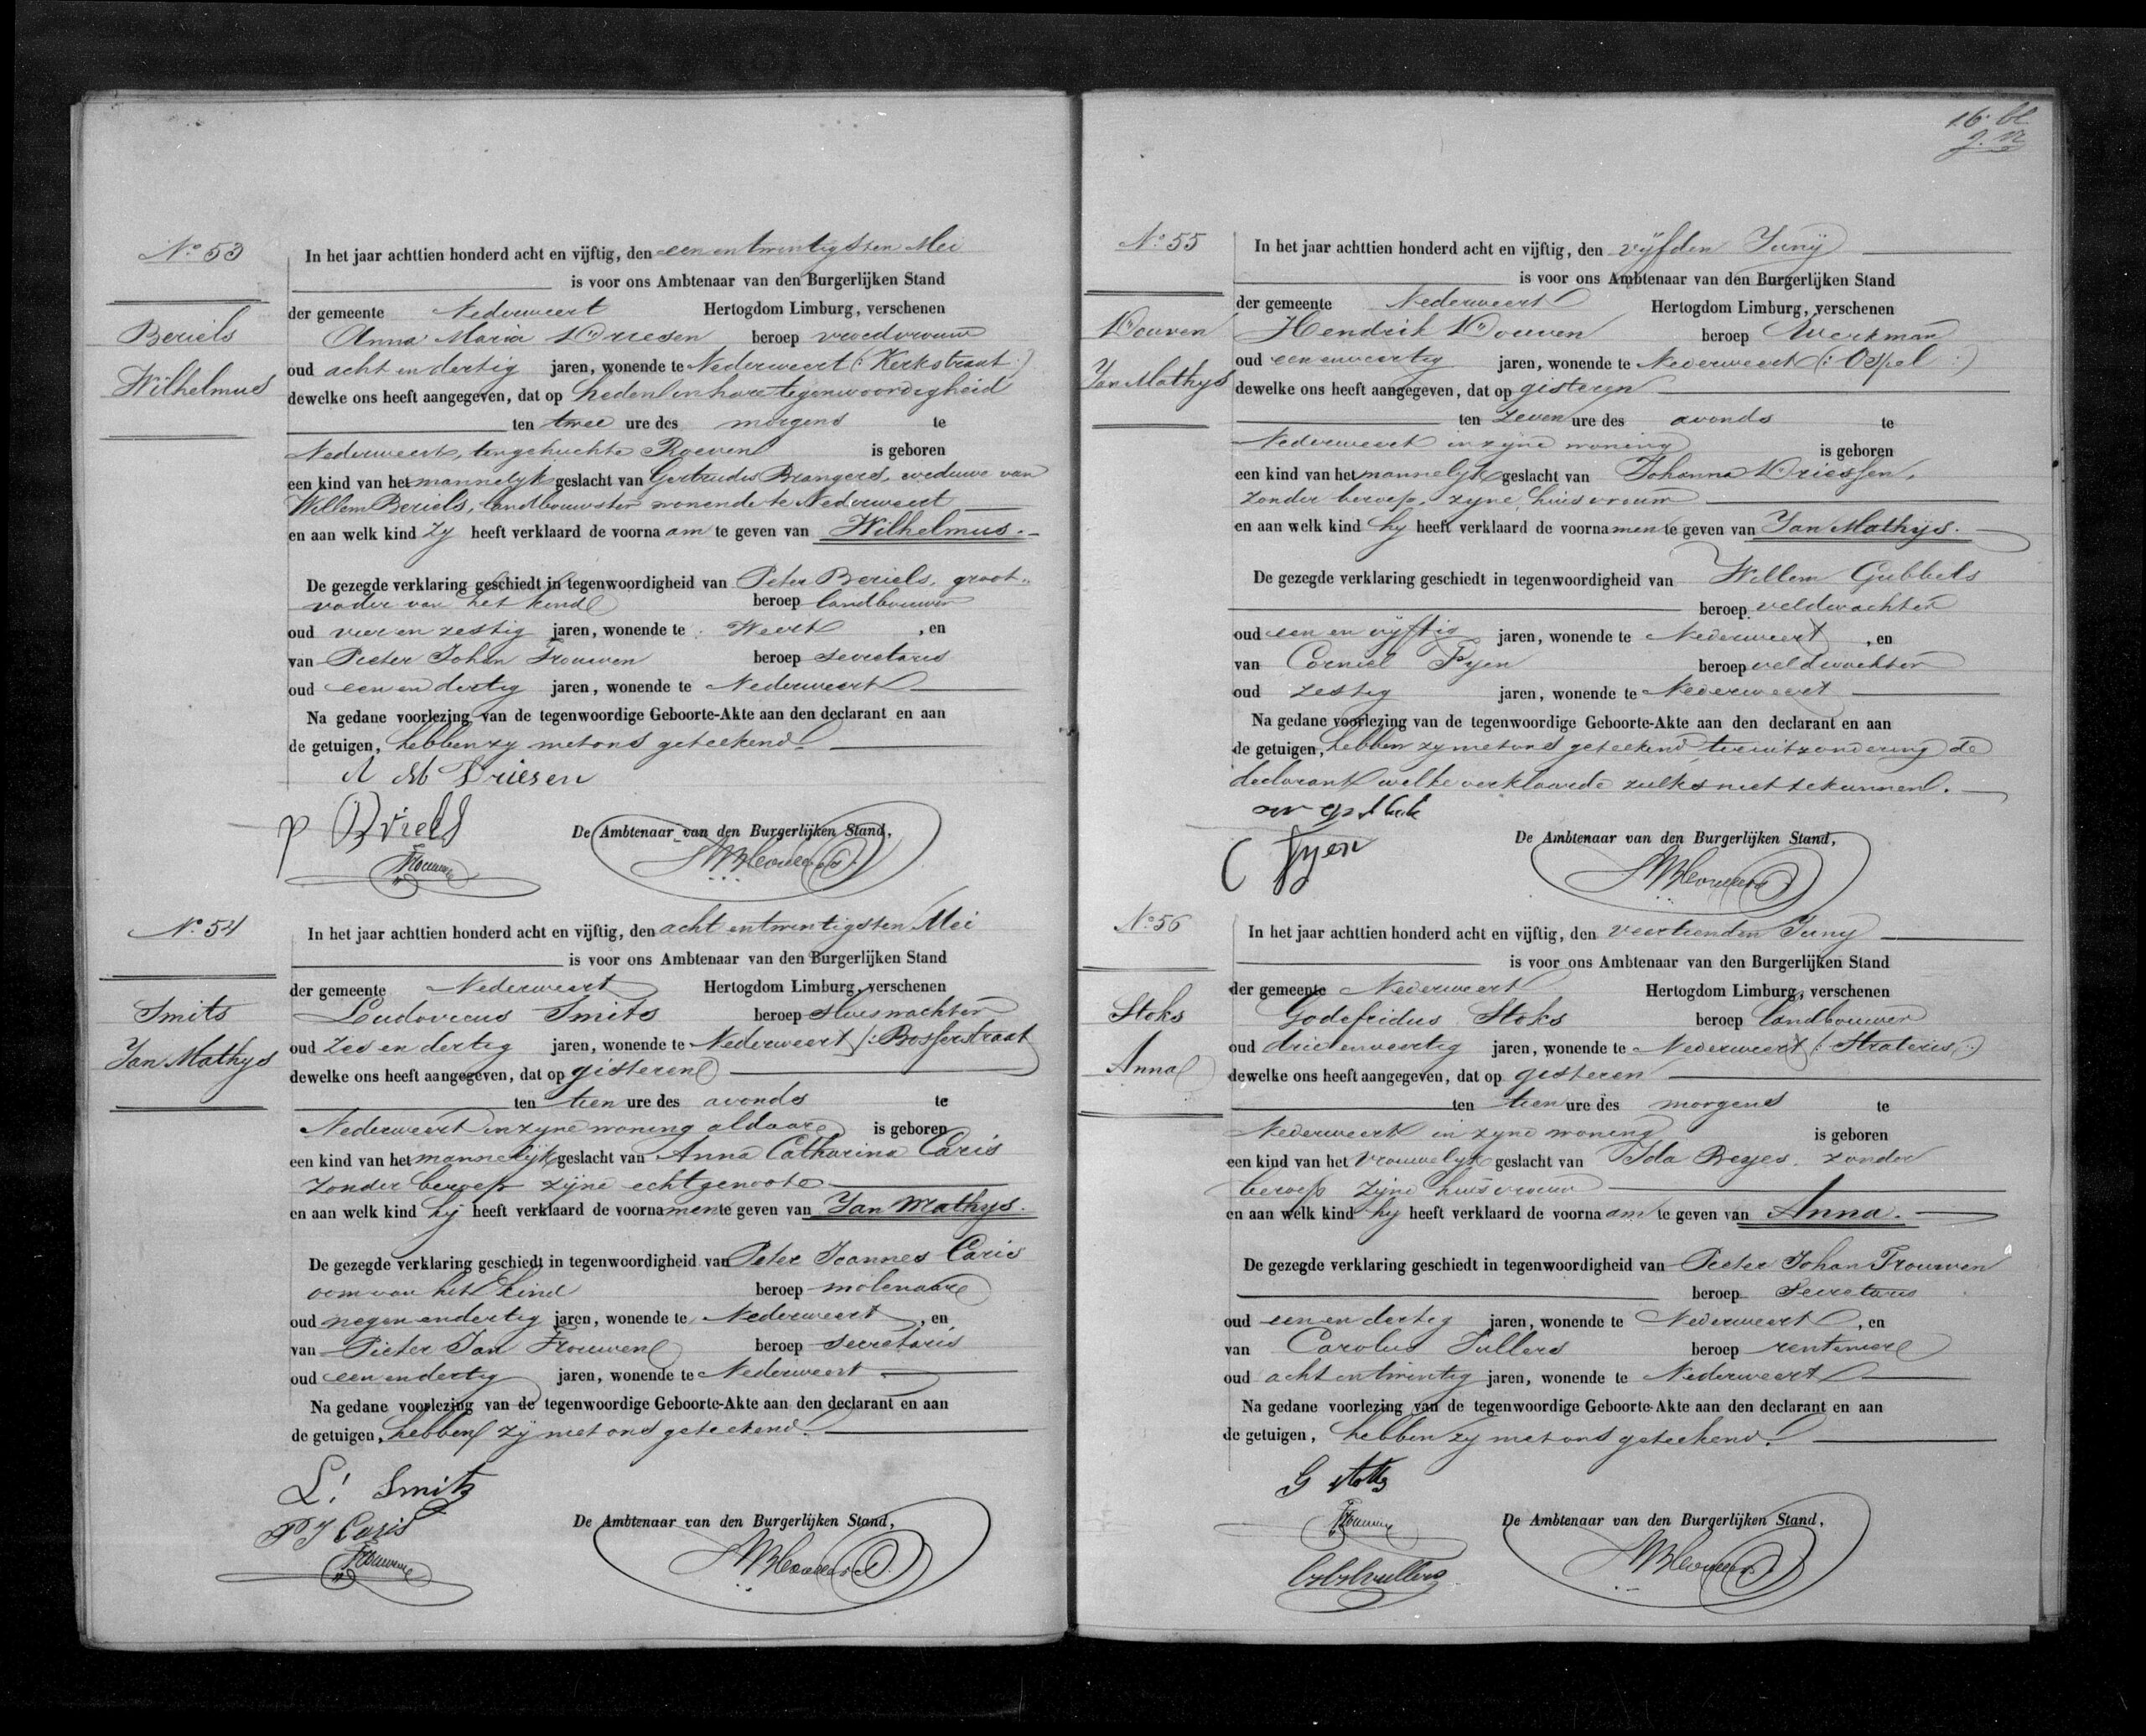 N.o 53
Beriels
Wilhelmus
In het jaar achttien honderd acht en vijftig, den een en twintigsten Mei
is voor ons Ambtenaar van den Burgerlijken Stand
der gemeente Nederweert Hertogdom Limburg, verschenen
Anna Maria Driesen beroep vroedvrouw
oud acht en dertig jaren, wonende te Nederweert (: Kerkstraat :)
dewelke ons heeft aangegeven, dat op heden in hare tegenwoordigheid
ten twee ure des morgens te
Nederweert, ten gehuchte Roeven is geboren
een kind van het mannelyk geslacht van Gertrudis Brangers, weduwe van
Willem Beriels, landbouwster wonende te Nederweert
en aan welk kind zy heeft verklaard de voorna am te geven van Wilhelmus.
De gezegde verklaring geschiedt in tegenwoordigheid van Peter Beriels, groot-
vader van het kind beroep landbouwer
oud vier en zestig jaren, wonende te Weert , en
van Pieter Johan Frouwen beroep secretaris
oud een en dertig jaren, wonende te Nederweert
Na gedane voorlezing van de tegenwoordige Geboorte-Akte aan den declarant en aan
de getuigen, hebben zy met ons geteekend.
A M Driesen
P Briels
Frouwen
De Ambtenaar van den Burgerlijken Stand,
N.o 54
Smits
Jan Mathys
In het jaar achttien honderd acht en vijftig, den acht en twintigsten Mei
is voor ons Ambtenaar van den Burgerlijken Stand
der gemeente Nederweert Hertogdom Limburg, verschenen
Ludovicus Smits beroep sluiswachter
oud zes en dertig jaren, wonende te Nederweert (: Bosserstraat
dewelke ons heeft aangegeven, dat op gisteren
ten tien ure des avonds te
Nederweert in zyne woning aldaar is geboren
een kind van het mannelijk geslacht van Anna Catharina Caris
zonder beroep zijne echtgenoote
en aan welk kind hij heeft verklaard de voorna men te geven van Jan Mathys.
De gezegde verklaring geschiedt in tegenwoordigheid van Peter Joannes Caris
oom van het kind beroep molenaar
oud negen en dertig jaren, wonende te Nederweert , en
van Pieter Jan Frouwen beroep secretaris
oud een en dertig jaren, wonende te Nederweert
Na gedane voorlezing van de tegenwoordige Geboorte-Akte aan den declarant en aan
de getuigen, hebben zy met ons geteekend.
L. Smits
P J Caris
Frouwen
De Ambtenaar van den Burgerlijken Stand,
16. bl
N.o 55
Douven
Jan Mathys
In het jaar achttien honderd acht en vijftig, den vijfden Junij
is voor ons Ambtenaar van den Burgerlijken Stand
der gemeente Nederweert Hertogdom Limburg, verschenen
Hendrik Douven beroep Werkman
oud een en veertig jaren, wonende te Nederweert (: Ospel :)
dewelke ons heeft aangegeven, dat op gisteren
ten zeven ure des avonds te
Nederweert in zyne woning is geboren
een kind van het mannelijk geslacht van Johanna Driessen,
zonder beroep, zyne huisvrouw
en aan welk kind hy heeft verklaard de voorna men te geven van Jan Mathys.
De gezegde verklaring geschiedt in tegenwoordigheid van Willem Gubbels
beroep veldwachter
oud een en vyftig jaren, wonende te Nederweert , en
van Corneel Fyen beroep veldwachter
oud zestig jaren, wonende te Nederweert
Na gedane voorlezing van de tegenwoordige Geboorte-Akte aan den declarant en aan
de getuigen, hebben zy met ons geteekend, ter uitzondering de
declarant welke verklaarde zulks niet te kunnen.
C Fyen
De Ambtenaar van den Burgerlijken Stand,
N.o 56
Stoks
Anna
In het jaar achttien honderd acht en vijftig, den veertienden Juny
is voor ons Ambtenaar van den Burgerlijken Stand
der gemeente Nederweert Hertogdom Limburg, verschenen
Godefridus Stoks beroep landbouwer
oud drie en veertig jaren, wonende te Nederweert (: Strateris :)
dewelke ons heeft aangegeven, dat op gisteren
ten tien ure des morgens te
Nederweert in zyne woning is geboren
een kind van het Vrouwelyk geslacht van Ida Beyes, zonder
beroep zijne huisvrouw
en aan welk kind hy heeft verklaard de voorna am te geven van Anna.
De gezegde verklaring geschiedt in tegenwoordigheid van Pieter Johan Frouwen
beroep Secretaris
oud een en dertig jaren, wonende te Nederweert , en
van Carolus Sullers beroep rentenier
oud acht en twintig jaren, wonende te Nederweert
Na gedane voorlezing van de tegenwoordige Geboorte-Akte aan den declarant en aan
de getuigen, hebben zy met ons geteekend.
G Stoks
Frouwen
De Ambtenaar van den Burgerlijken Stand,